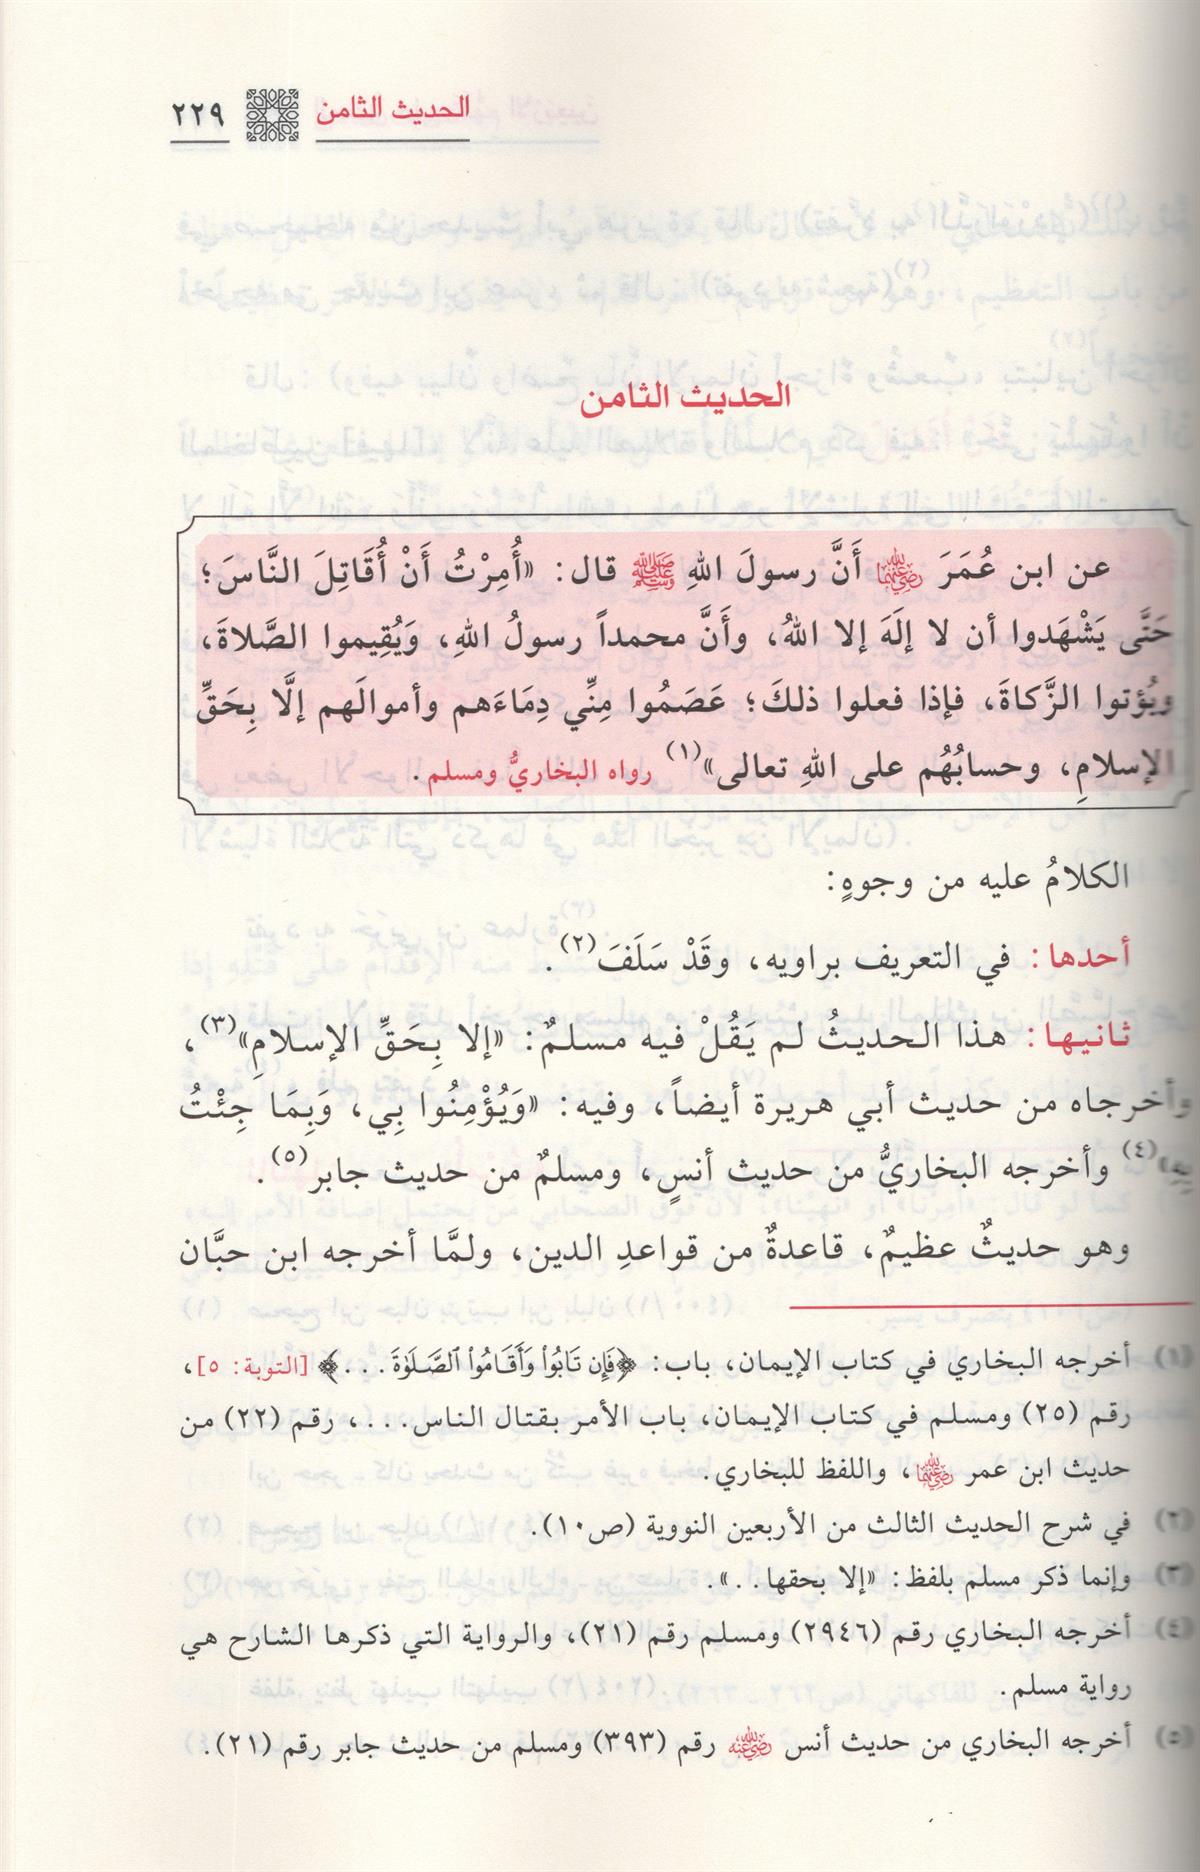 الحديث الثامن ٢٢٩
الحديث الثامن
عن ابن عُمَرَ رضي الله عنهما أَنَّ رسولَ اللهِ ﷺ قال: «أُمِرْتُ أَنْ أُقَاتِلَ النَّاسَ؛
حَتَّى يَشْهَدوا أن لا إلَهَ إلا اللهُ، وأَنَّ محمداً رسولُ اللهِ، وَيُقِيموا الصَّلاةَ،
ويُؤتوا الزَّكاةَ، فإذا فعلوا ذلكَ؛ عَصَمُوا مِنِّي دِمَاءَهم وأموالَهم إلَّا بِحَقِّ
الإسلامِ، وحسابُهُم على اللهِ تعالى»(١) رواه البخاريُّ ومسلم.
الكلامُ عليه من وجوهٍ:
أحدها: في التعريف براويه، وقَدْ سَلَفَ(٢).
ثانيها: هذا الحديثُ لم يَقُلْ فيه مسلمٌ: «إلا بِحَقِّ الإسلامِ»(٣)،
وأخرجاه من حديث أبي هريرة أيضاً، وفيه: «وَيُؤْمِنُوا بِي، وَبِمَا جِئْتُ
بِهِ»(٤) وأخرجه البخاريُّ من حديث أنسٍ، ومسلمٌ من حديث جابر(٥).
وهو حديثٌ عظيمٌ، قاعدةٌ من قواعدِ الدين، ولمَّا أخرجه ابن حبَّان
(١) أخرجه البخاري في كتاب الإيمان، باب: ﴿فَإِن تَابُوا۟ وَأَقَامُوا۟ ٱلصَّلَوٰةَ ...﴾ [التوبة: ٥]،
رقم (٢٥) ومسلم في كتاب الإيمان، باب الأمر بقتال الناس...، رقم (٢٢) من
حديث ابن عمر رضي الله عنهما، واللفظ للبخاري.
(٢) في شرح الحديث الثالث من الأربعين النووية (ص١٠).
(٣) وإنما ذكر مسلم بلفظ: «إلا بحقها..».
(٤) أخرجه البخاري رقم (٢٩٤٦) ومسلم رقم (٢١)، والرواية التي ذكرها الشارح هي
رواية مسلم.
(٥) أخرجه البخاري من حديث أنس رضي الله عنه رقم (٣٩٣) ومسلم من حديث جابر رقم (٢١).